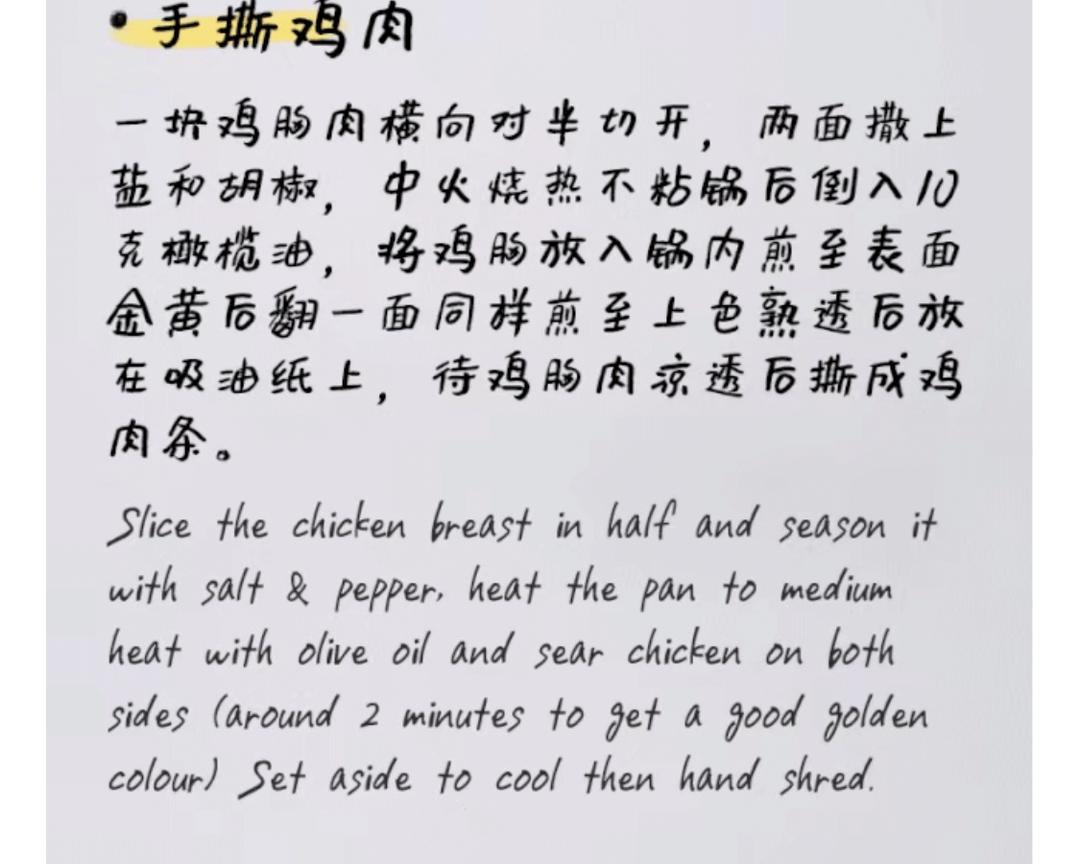 • 手撕鸡肉
一块鸡胸肉横向对半切开，两面撒上
盐和胡椒，中火烧热不粘锅后倒入10
克橄榄油，将鸡胸放入锅内煎至表面
金黄后翻一面同样煎至上色熟透后放
在吸油纸上，待鸡胸肉凉透后撕成鸡
肉条。
Slice the chicken breast in half and season it
with salt & pepper, heat the pan to medium
heat with olive oil and sear chicken on both
sides (around 2 minutes to get a good golden
colour) Set aside to cool then hand shred.